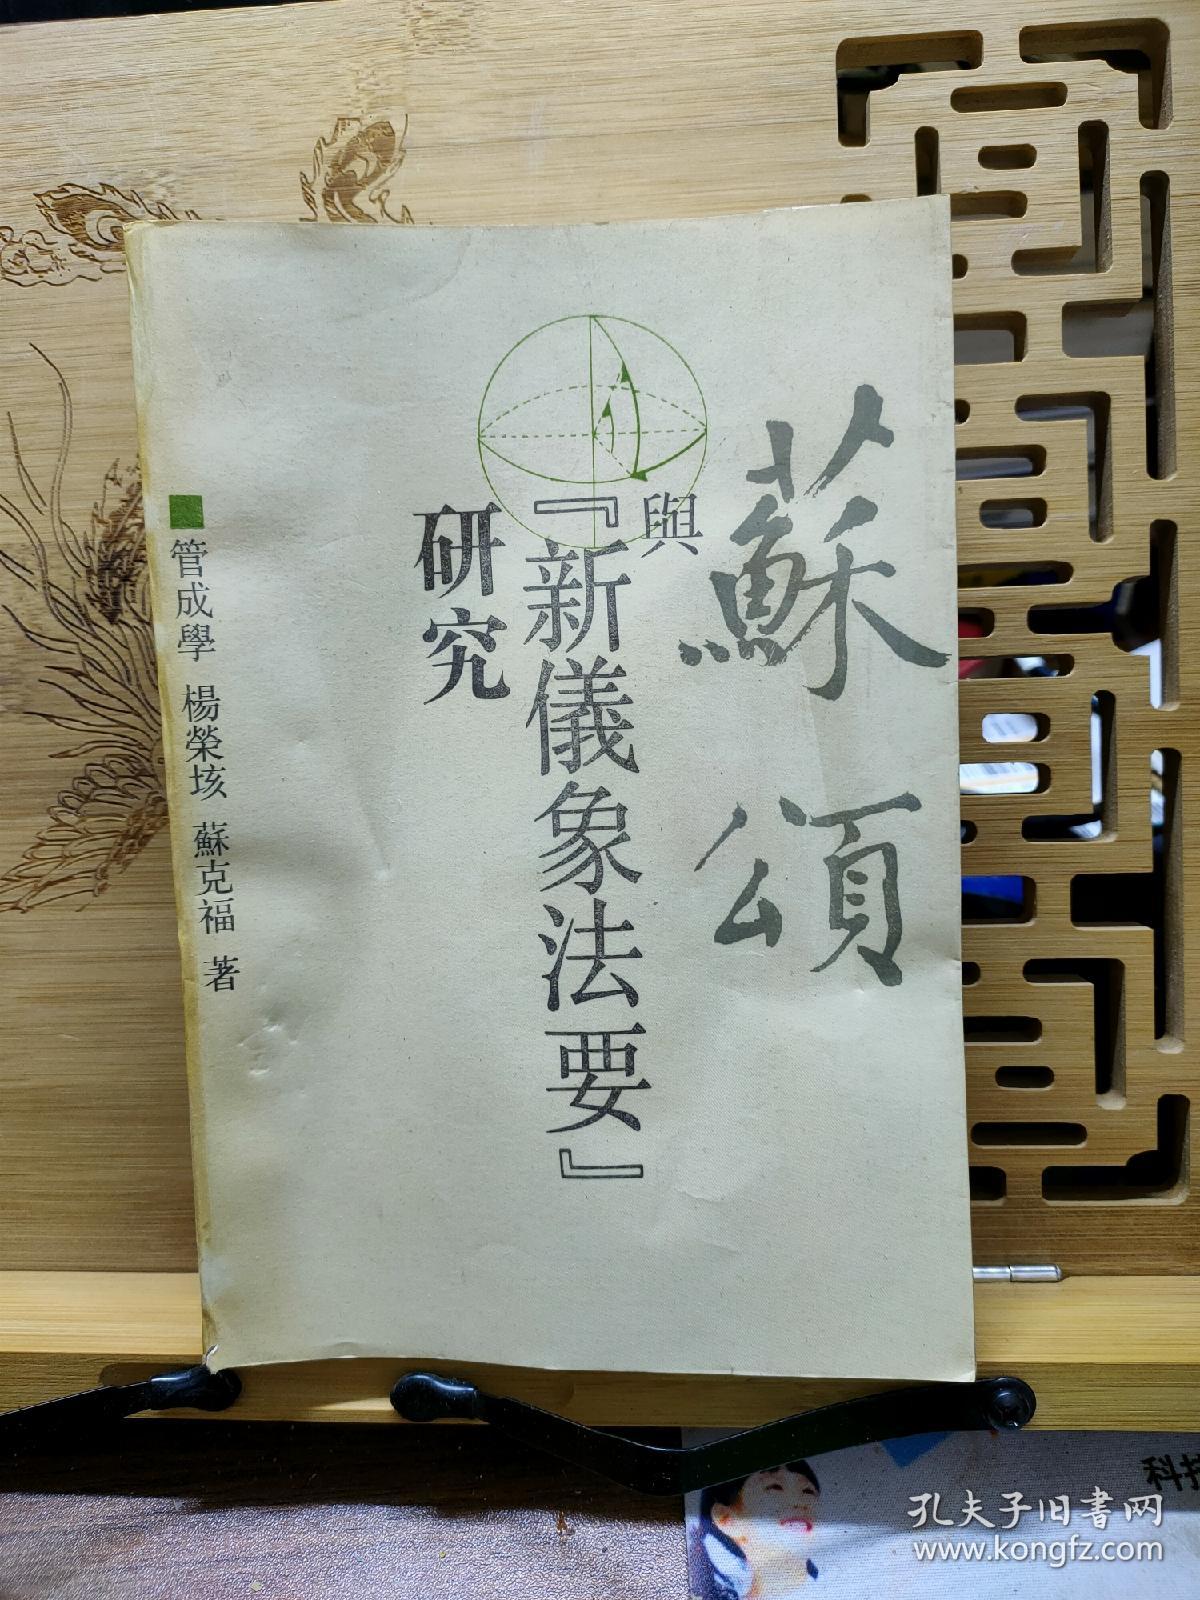 蘇頌
與
『新儀象法要』
研究
管成學 楊榮垓 蘇克福 著
科技
孔夫子旧书网
www.kongfz.com